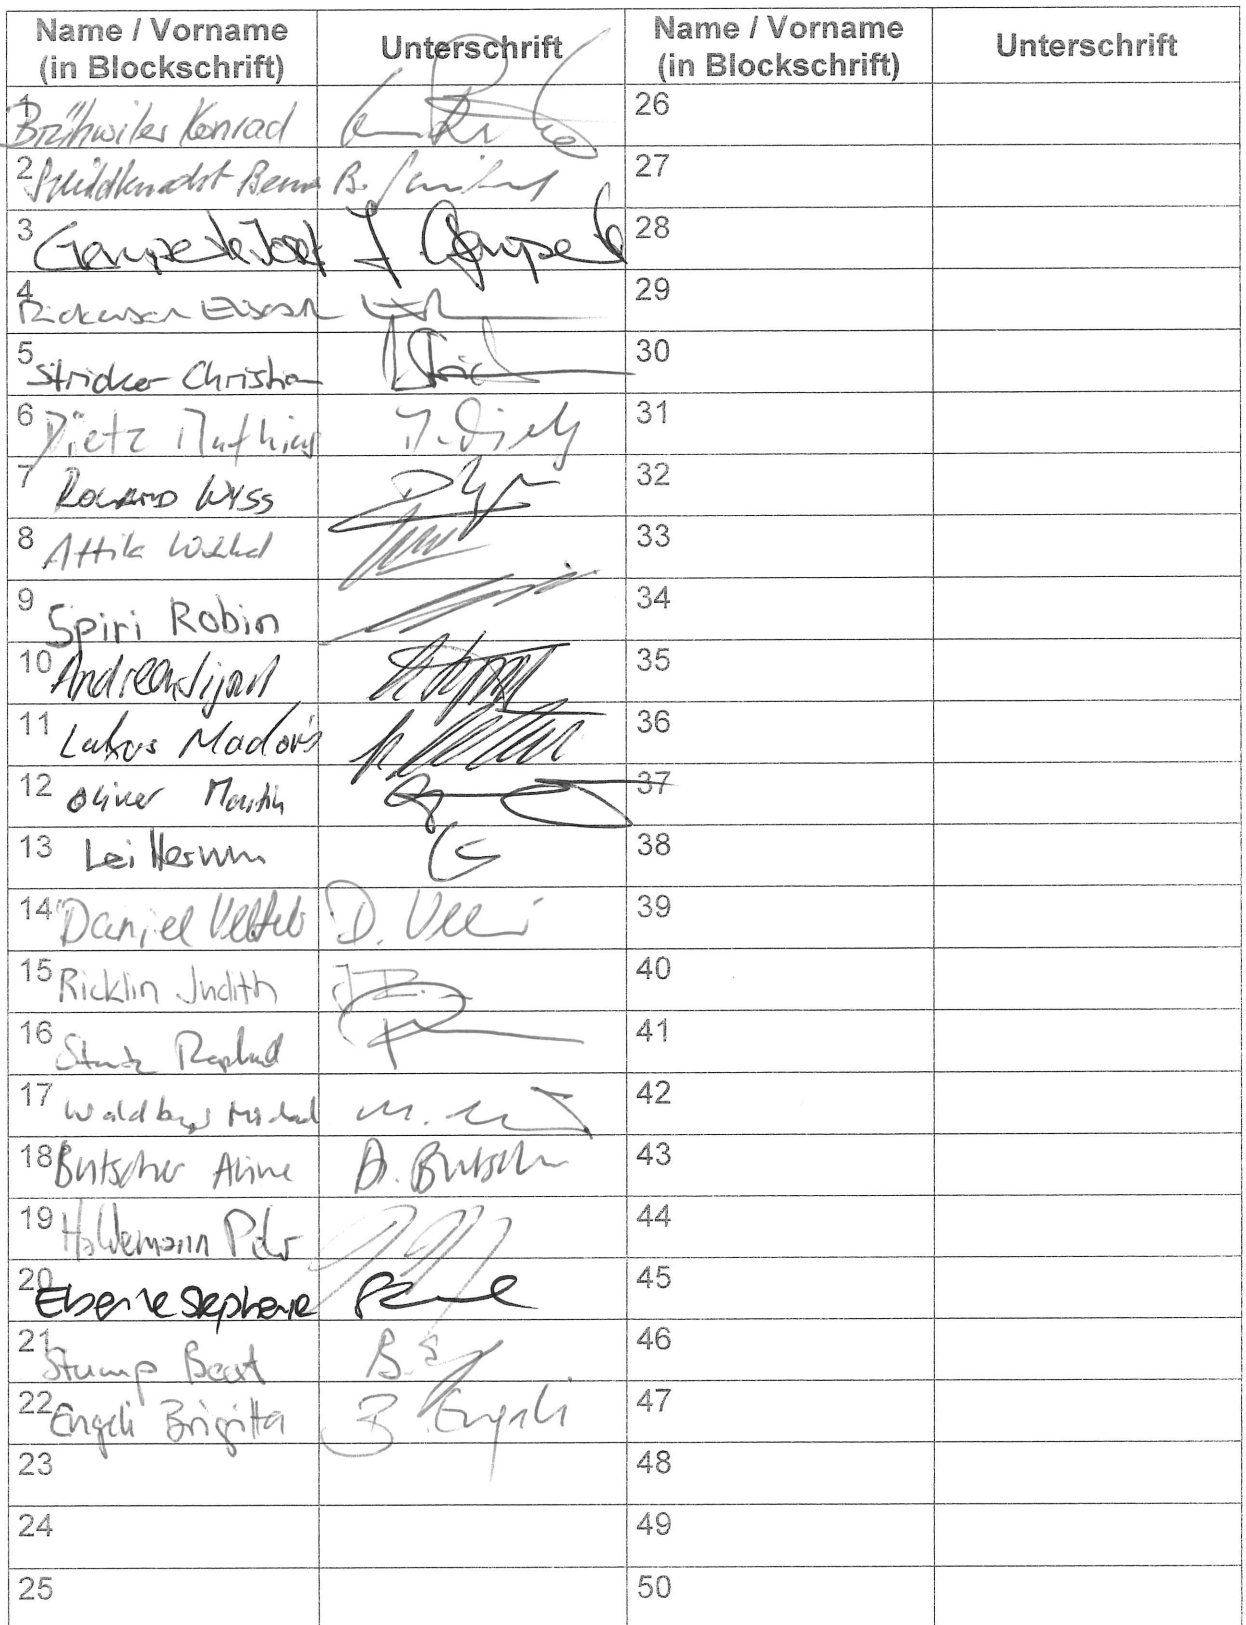 Name / Vorname
(in Blockschrift)
Unterschrift
Name / Vorname
(in Blockschrift)
Unterschrift
1 Brühwiler Konrad
26
2 Schildknecht B.
27
3 Gemperle Josef J. Gemperle
28
4
29
5 Stricker Christian
30
6 Dietz Mathias M. Dietz
31
7 ROLAND WYSS
32
8 Attila
33
9 Spiri Robin
34
10 Andrea
35
11 Lukas Madörin
36
12 Oliver Martin
37
13 Lei Hermann
38
14 Daniel D.
39
15 Ricklin Judith J. R.
40
16 Raphael
41
17 M.
42
18 Butscher Aline A. Butscher
43
19 Haldemann Peter
44
20 Eberle Stephanie
45
21 Stump Beat B.
46
22 Engeli Brigitta B. Engeli
47
23
48
24
49
25
50